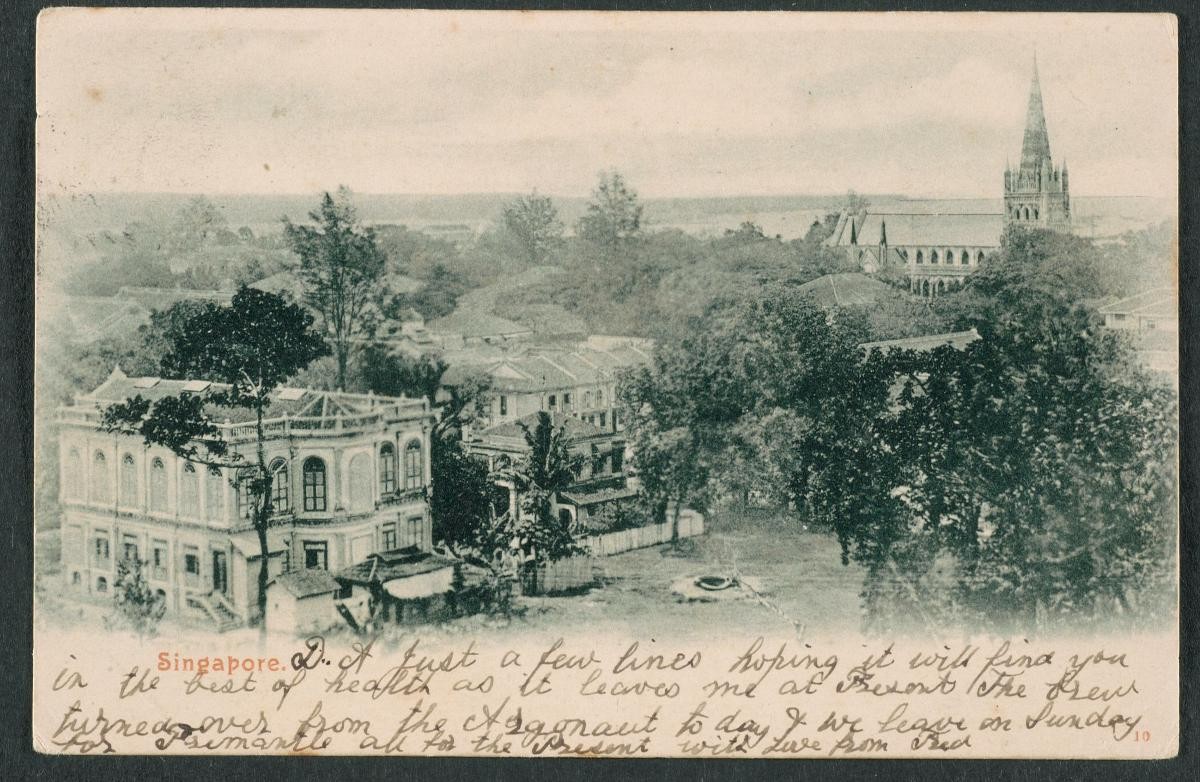 Singapore. D.. A Just a few lines hoping it will find you
in the best of health as it leaves me at Present The Crew
turned over from the Argonaut to day & we leave on Sunday
for Frimantle all for the Present with Love from Fred
10